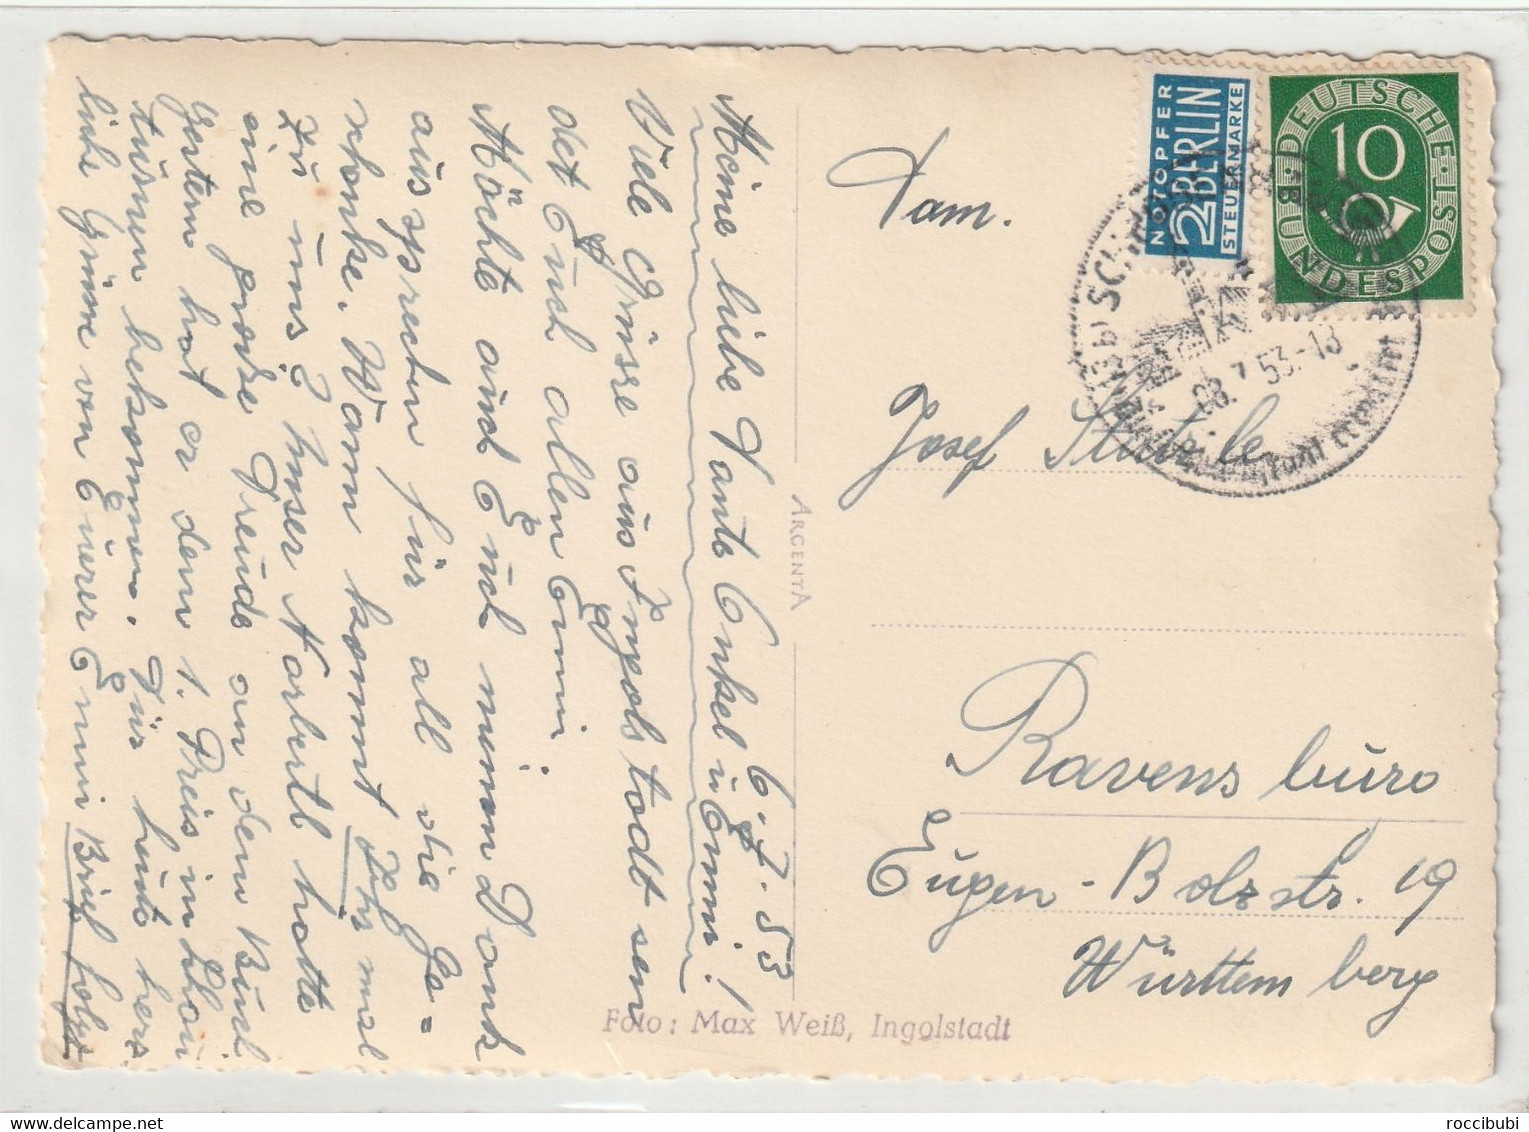 6.7.53
Meine liebe Tante Onkel u. Emmi!
Viele Grüsse aus Ingolstadt sen
det Euch allen Emmi
Möchte auch Euch meinen Dank
aussprechen für all die Ge=
schenke. Wann kommt Ihr mal
zu uns? Unser Norbertl hatte
eine große Freude an dem Buch.
Gestern hat er den 1. Preis im
turnen bekommen. Für heute herz
liche Grüsse von Eurer Emmi Brief folgt
ARGENTA
Foto: Max Weiß, Ingolstadt
NOTOPFER
2 BERLIN
STEUERMARKE
DEUTSCHE BUNDESPOST
10
08.7.53.-18
Fam.
Josef Stützle
Ravensburg
Eugen-Bolzstr. 19
Württemberg
roccibubi